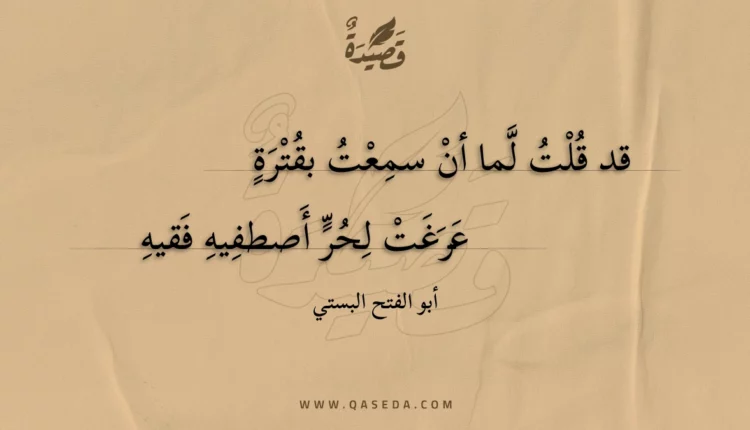 قَصِيْدَةٌ
قد قُلْتُ لَّما أنْ سمِعْتُ بقُتْرَةٍ
عَرَغَتْ لِحُرٍّ أَصطفِيهِ فَقيهِ
أبو الفتح البستي
WWW.QASEDA.COM